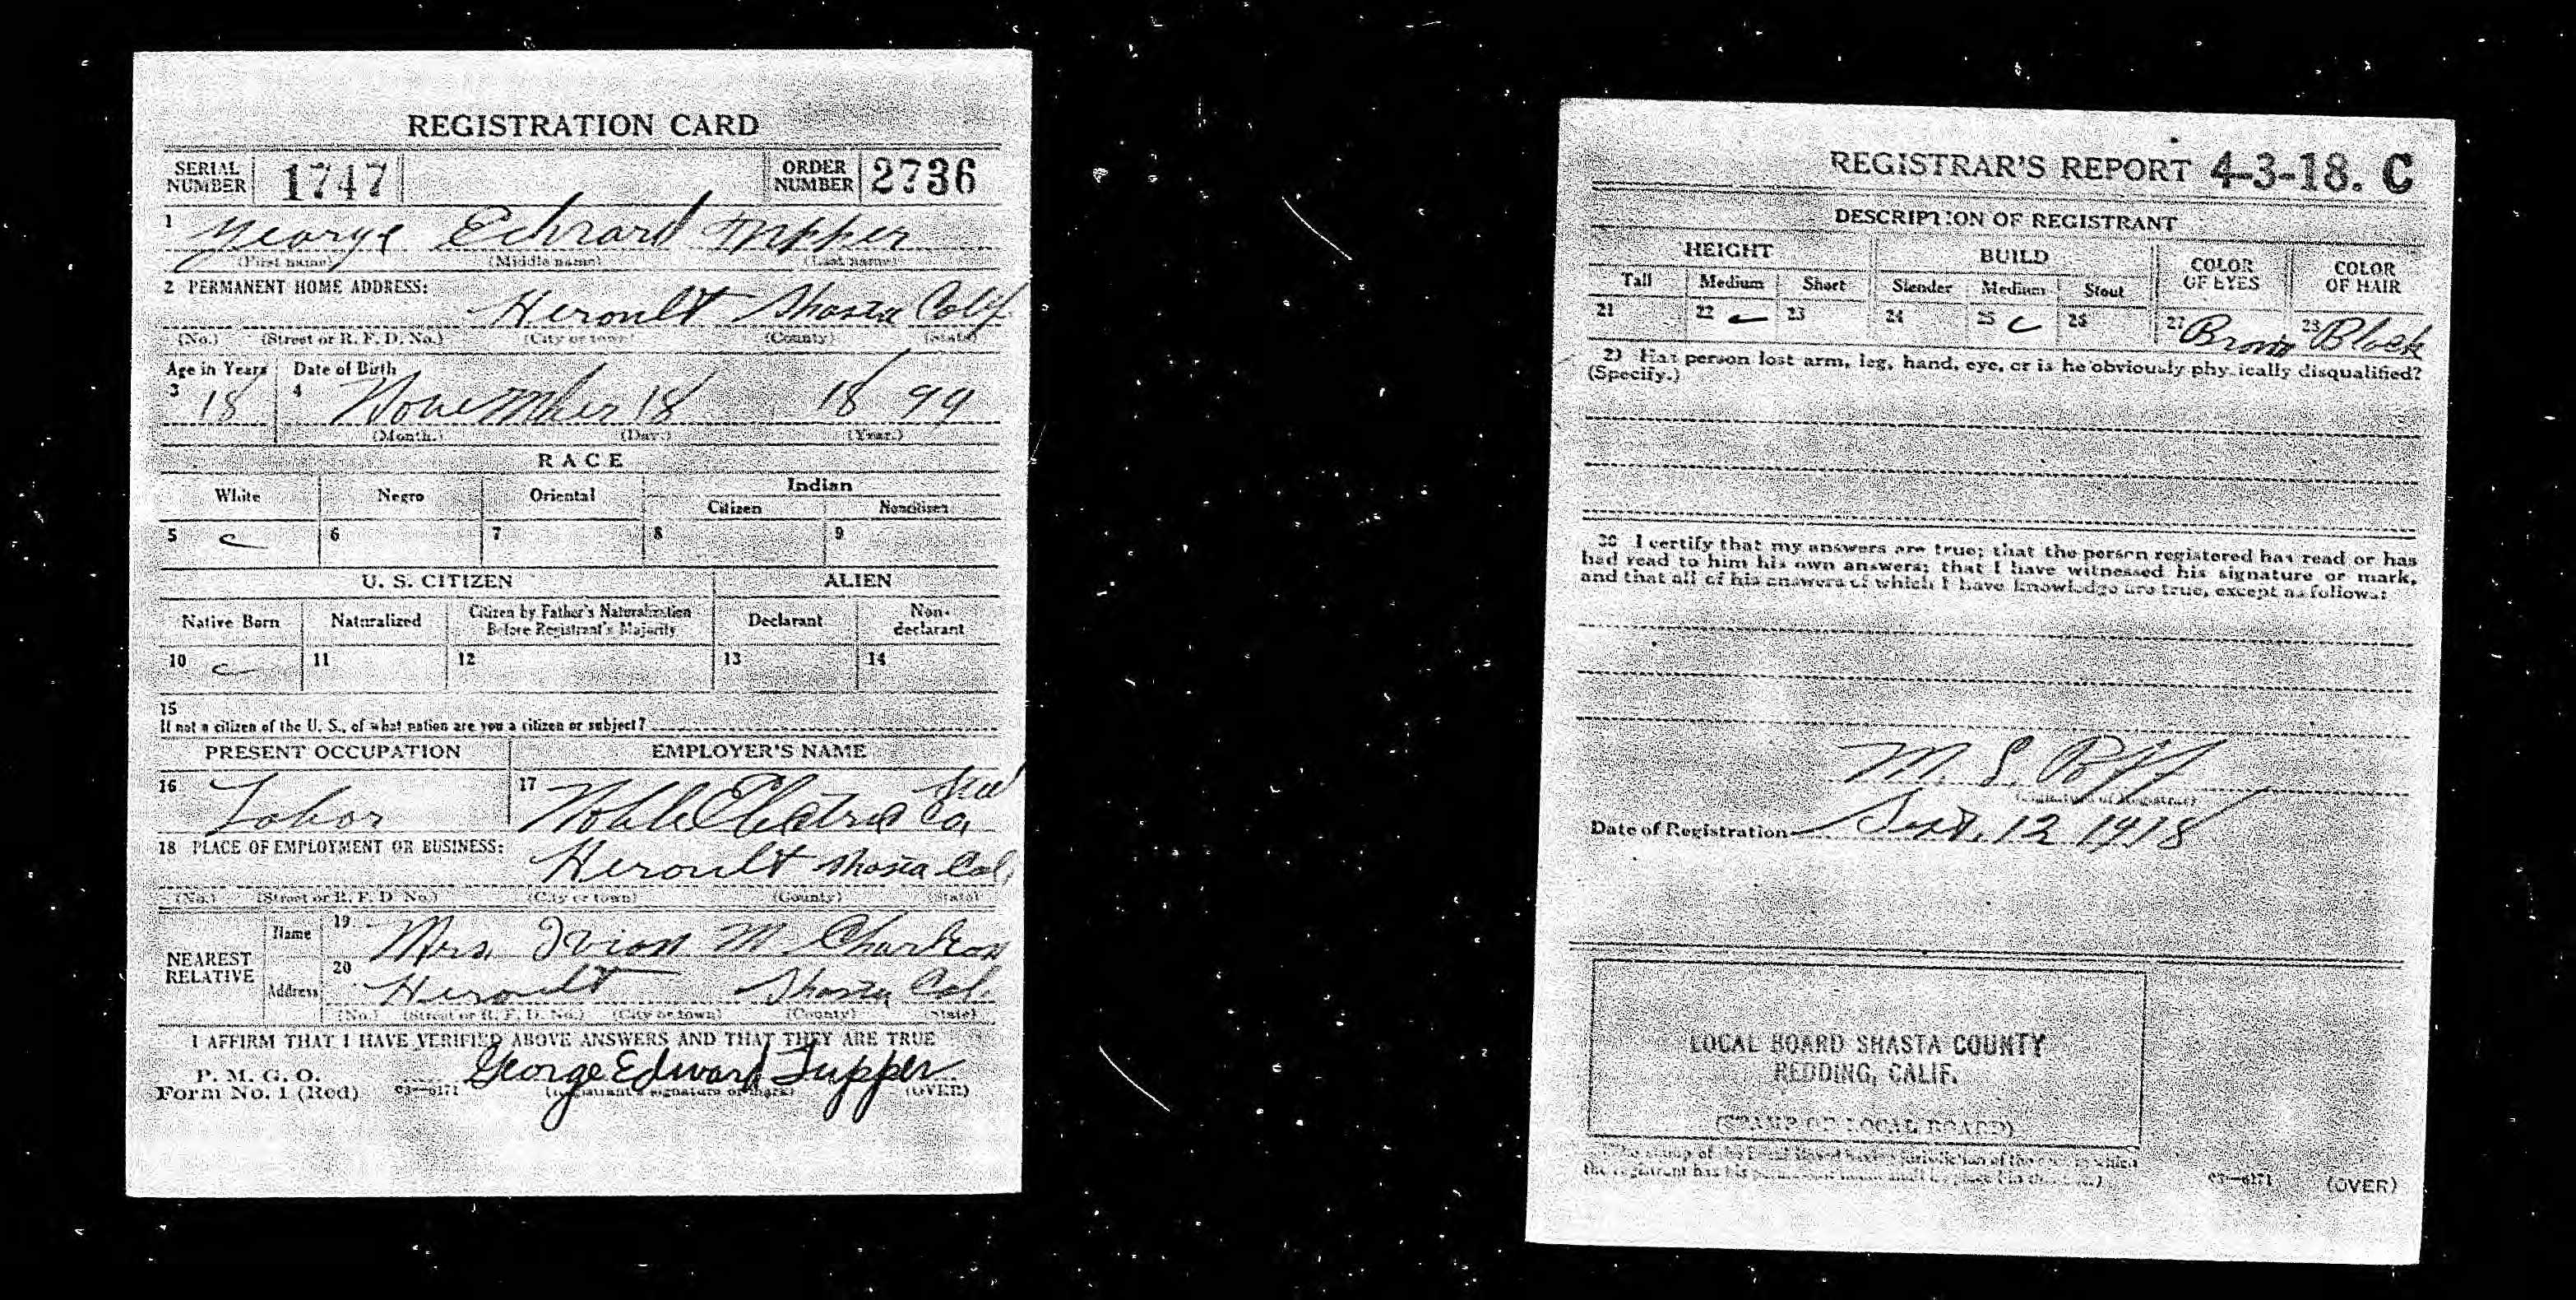 REGISTRATION CARD
SERIAL NUMBER 1747 ORDER NUMBER 2736
1 George Edward Tupper
(First name) (Middle name) (Last name)
2 PERMANENT HOME ADDRESS:
Heroult Shasta Calif
(No.) (Street or R. F. D. No.) (City or town) (County) (State)
Age in Years Date of Birth
3 18 4 November 18 18 99
(Month.) (Day.) (Year.)
RACE
White Negro Oriental Indian
Citizen Noncitizen
5 c 6 7 8 9
U. S. CITIZEN ALIEN
Native Born Naturalized Citizen by Father's Naturalization Before Registrant's Majority Declarant Non-declarant
10 c 11 12 13 14
15
If not a citizen of the U. S., of what nation are you a citizen or subject?
PRESENT OCCUPATION EMPLOYER'S NAME
16 Labor 17 Noble Electric Co,
18 PLACE OF EMPLOYMENT OR BUSINESS:
Heroult Shasta Cal,
(No.) (Street or R. F. D. No.) (City or town) (County) (State)
NEAREST RELATIVE
Name 19 Mrs. M
Address 20 Heroult Shasta Cal.
(No.) (Street or R. F. D. No.) (City or town) (County) (State)
I AFFIRM THAT I HAVE VERIFIED ABOVE ANSWERS AND THAT THEY ARE TRUE
P. M. G. O.
Form No. 1 (Red) 03—6171 George Edward Tupper
(Registrant's signature or mark) (OVER)
REGISTRAR'S REPORT 4-3-18. C
DESCRIPTION OF REGISTRANT
HEIGHT BUILD COLOR OF EYES COLOR OF HAIR
Tall Medium Short Slender Medium Stout
21 22 c 23 24 25 c 26 27 Brown 28 Black
29 Has person lost arm, leg, hand, eye, or is he obviously physically disqualified?
(Specify.)
30 I certify that my answers are true; that the person registered has read or has
had read to him his own answers; that I have witnessed his signature or mark,
and that all of his answers of which I have knowledge are true, except as follows:
M. S.
(Signature of Registrar)
Date of Registration Sept. 12 1918
LOCAL BOARD SHASTA COUNTY
REDDING, CALIF.
(STAMP OF LOCAL BOARD)
(The stamp of the Local Board having jurisdiction of the area in which
the registrant has his permanent home shall be placed in this box.)
03—6171 (OVER)